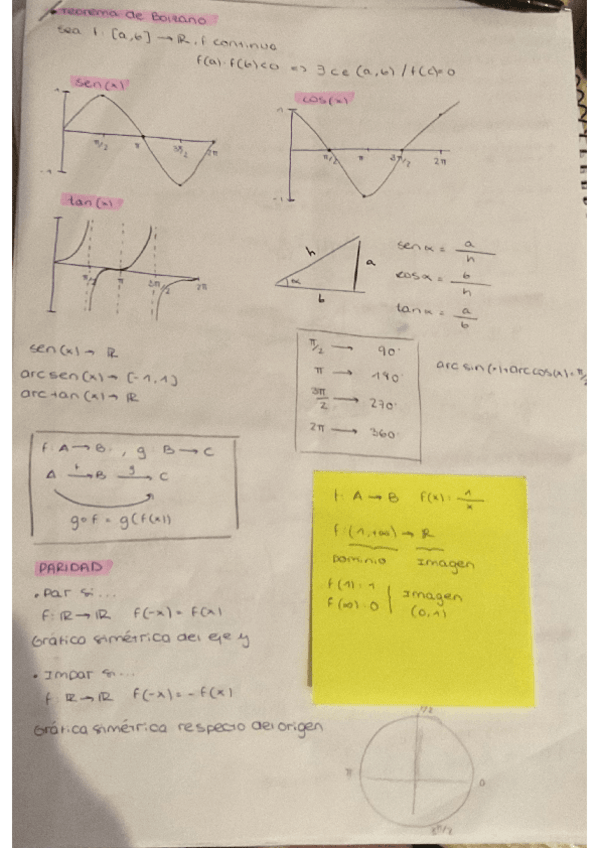 Teorema de Bolzano
Sea f: [a,b] → ℝ, f continua
f(a)·f(b)<0 => ∃ c ∈ (a,b) / f(c)=0
sen(x)
1
π/2 π 3π/2 2π
-1
cos(x)
1
π/2 π 3π/2 2π
-1
tan(x)
π/2 π 3π/2 2π
h a
α
b
sen α = a/h
cos α = b/h
tan α = a/b
sen(x) → ℝ
arcsen(x) → [-1,1]
arctan(x) → ℝ
π/2 → 90°
π → 180°
3π/2 → 270°
2π → 360°
arcsin(x)+arccos(x)=π/2
f: A → B , g: B → C
A f→ B g→ C
g∘f = g(f(x))
f: A → B f(x) = 1/x
f: (1,+∞) → ℝ
Dominio Imagen
f(1) = 1
f(∞) = 0
Imagen
(0,1)
PARIDAD
• Par si...
f: ℝ → ℝ f(-x) = f(x)
Gráfica simétrica del eje y
• Impar si...
f: ℝ → ℝ f(-x) = -f(x)
Gráfica simétrica respecto del origen
π/2
π 0
3π/2